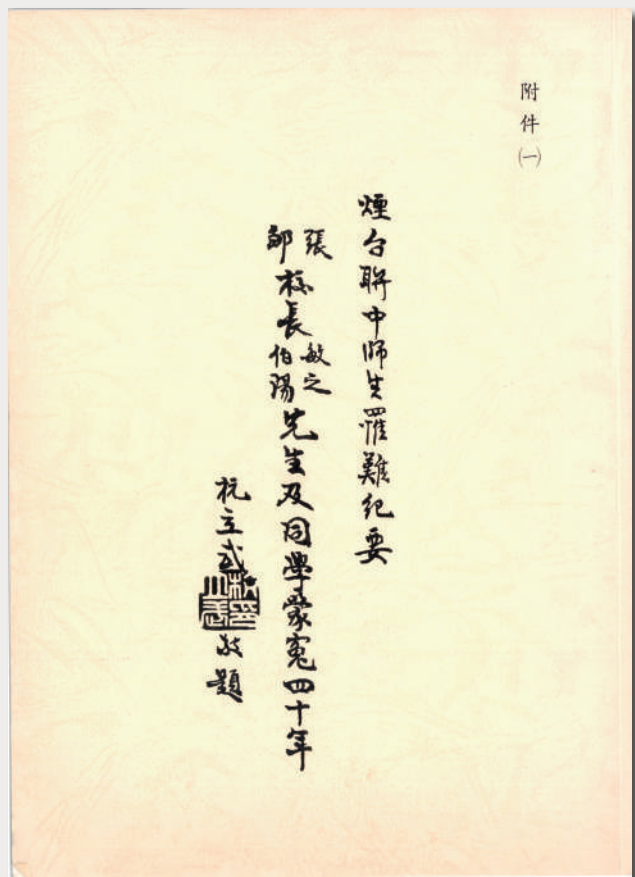 附件㈠
煙台聯中師生罹難紀要
張敏之
鄒校長伯陽先生及同學蒙冤四十年
杭立武敬題